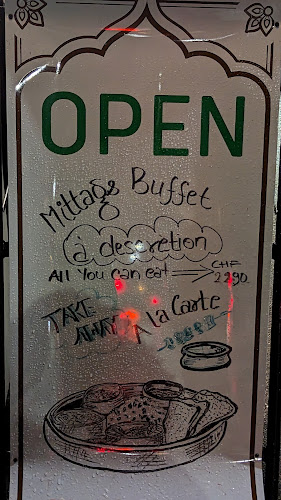 OPEN
Mittags Buffet
à descretion
All You can eat
CHF
22.90
TAKE
AWAY
A la Carte